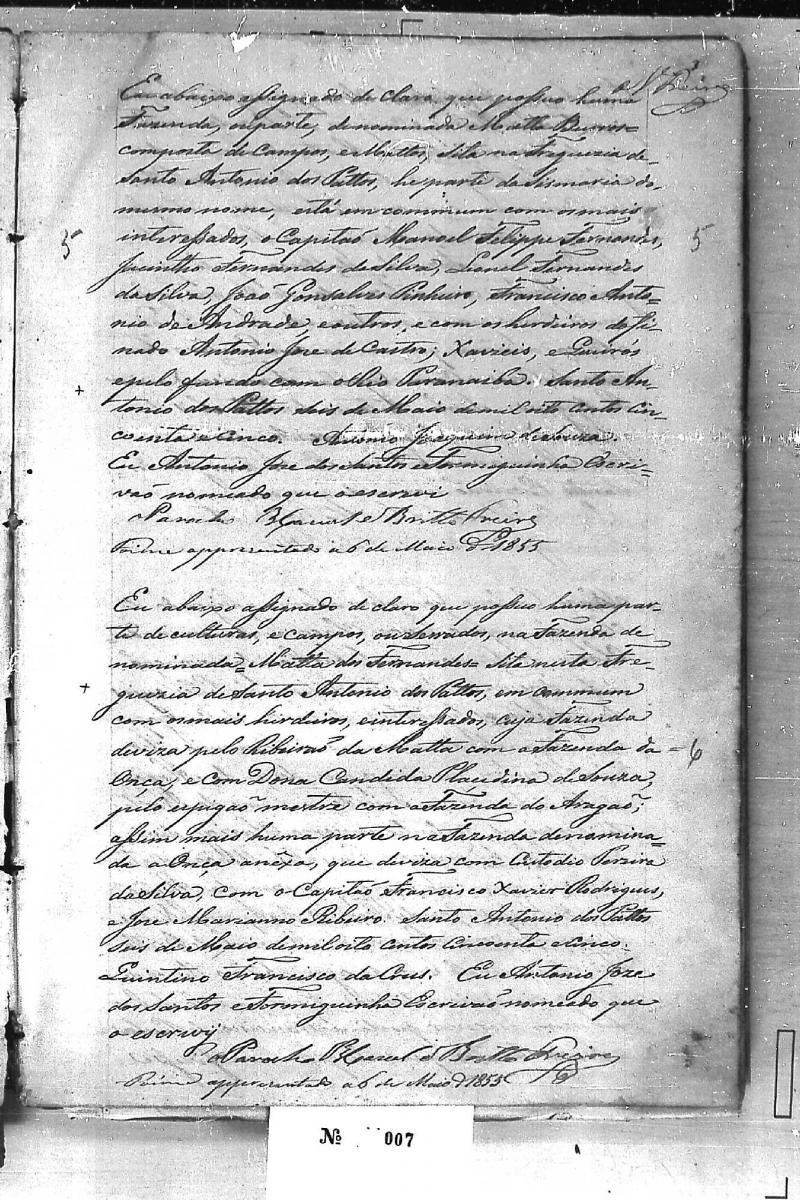 Eu abaixo assignado de claro que possuo huma
Fazenda, ou parte, denominada Matta Burros=
composta de Campos, e Mattos, Sita na Freguezia de
Santo Antonio dos Pattos, he parte da Sismaria do
mesmo nome, está em commum com os mais
5 interessados, o Capitaõ Manoel Felippe Fernandes, 5
Jacintho Fernandes de Silva, Leonel Fernandes
da Silva, Joaõ Gonsalves Pinheiro, Francisco Anto-
nio de Andrade, e outros, e com os herdeiros do fi-
nado Antonio Joze de Castro; Xavieis, e Queirós
e pelo fundo com o Rio Paranaiba. Santo An-
tonio dos Pattos seis de Maio de mil oito centos cin-
coenta e cinco. Antonio Joaquim de Souza.
Eu Antonio Joze dos Santos e Formiguinha Escri-
vaõ nomeado que o escrevi
o Parocho Mel de Britto Freire
Foi me appresentado a 6 de Maio de 1855
Eu abaixo assignado de claro que possuo huma par-
te de culturas, e campos, ou Serrados, na Fazenda de
nominada=Matta dos Fernandes= Sita nesta Fre-
guezia de Santo Antonio dos Pattos, em commum
com os mais herdeiros, e interessados, cuja Fazenda
deviza pelo Ribeiraõ da Matta com a Fazenda da = 6
Onça, e com Dona Candida Placedina de Souza,
pelo espigaõ mestre com a Fazenda do Aragaõ;
assim mais huma parte na Fazenda denomina-
da a Onça anéxa, que deviza com Custodio Pereira
da Silva, com o Capitaõ Francisco Xavier Rodrigues,
e Joze Marianno Ribeiro. Santo Antonio dos Pattos
seis de Maio de mil oito centos Cincoenta e cinco.
Quintino Francisco da Crus. Eu Antonio Joze
dos Santos e Formiguinha Escrivaõ nomeado que
o escrevij
o Parocho de Britto Freire
Foi me appresentado a 6 de Maio de 1855
Nº 007